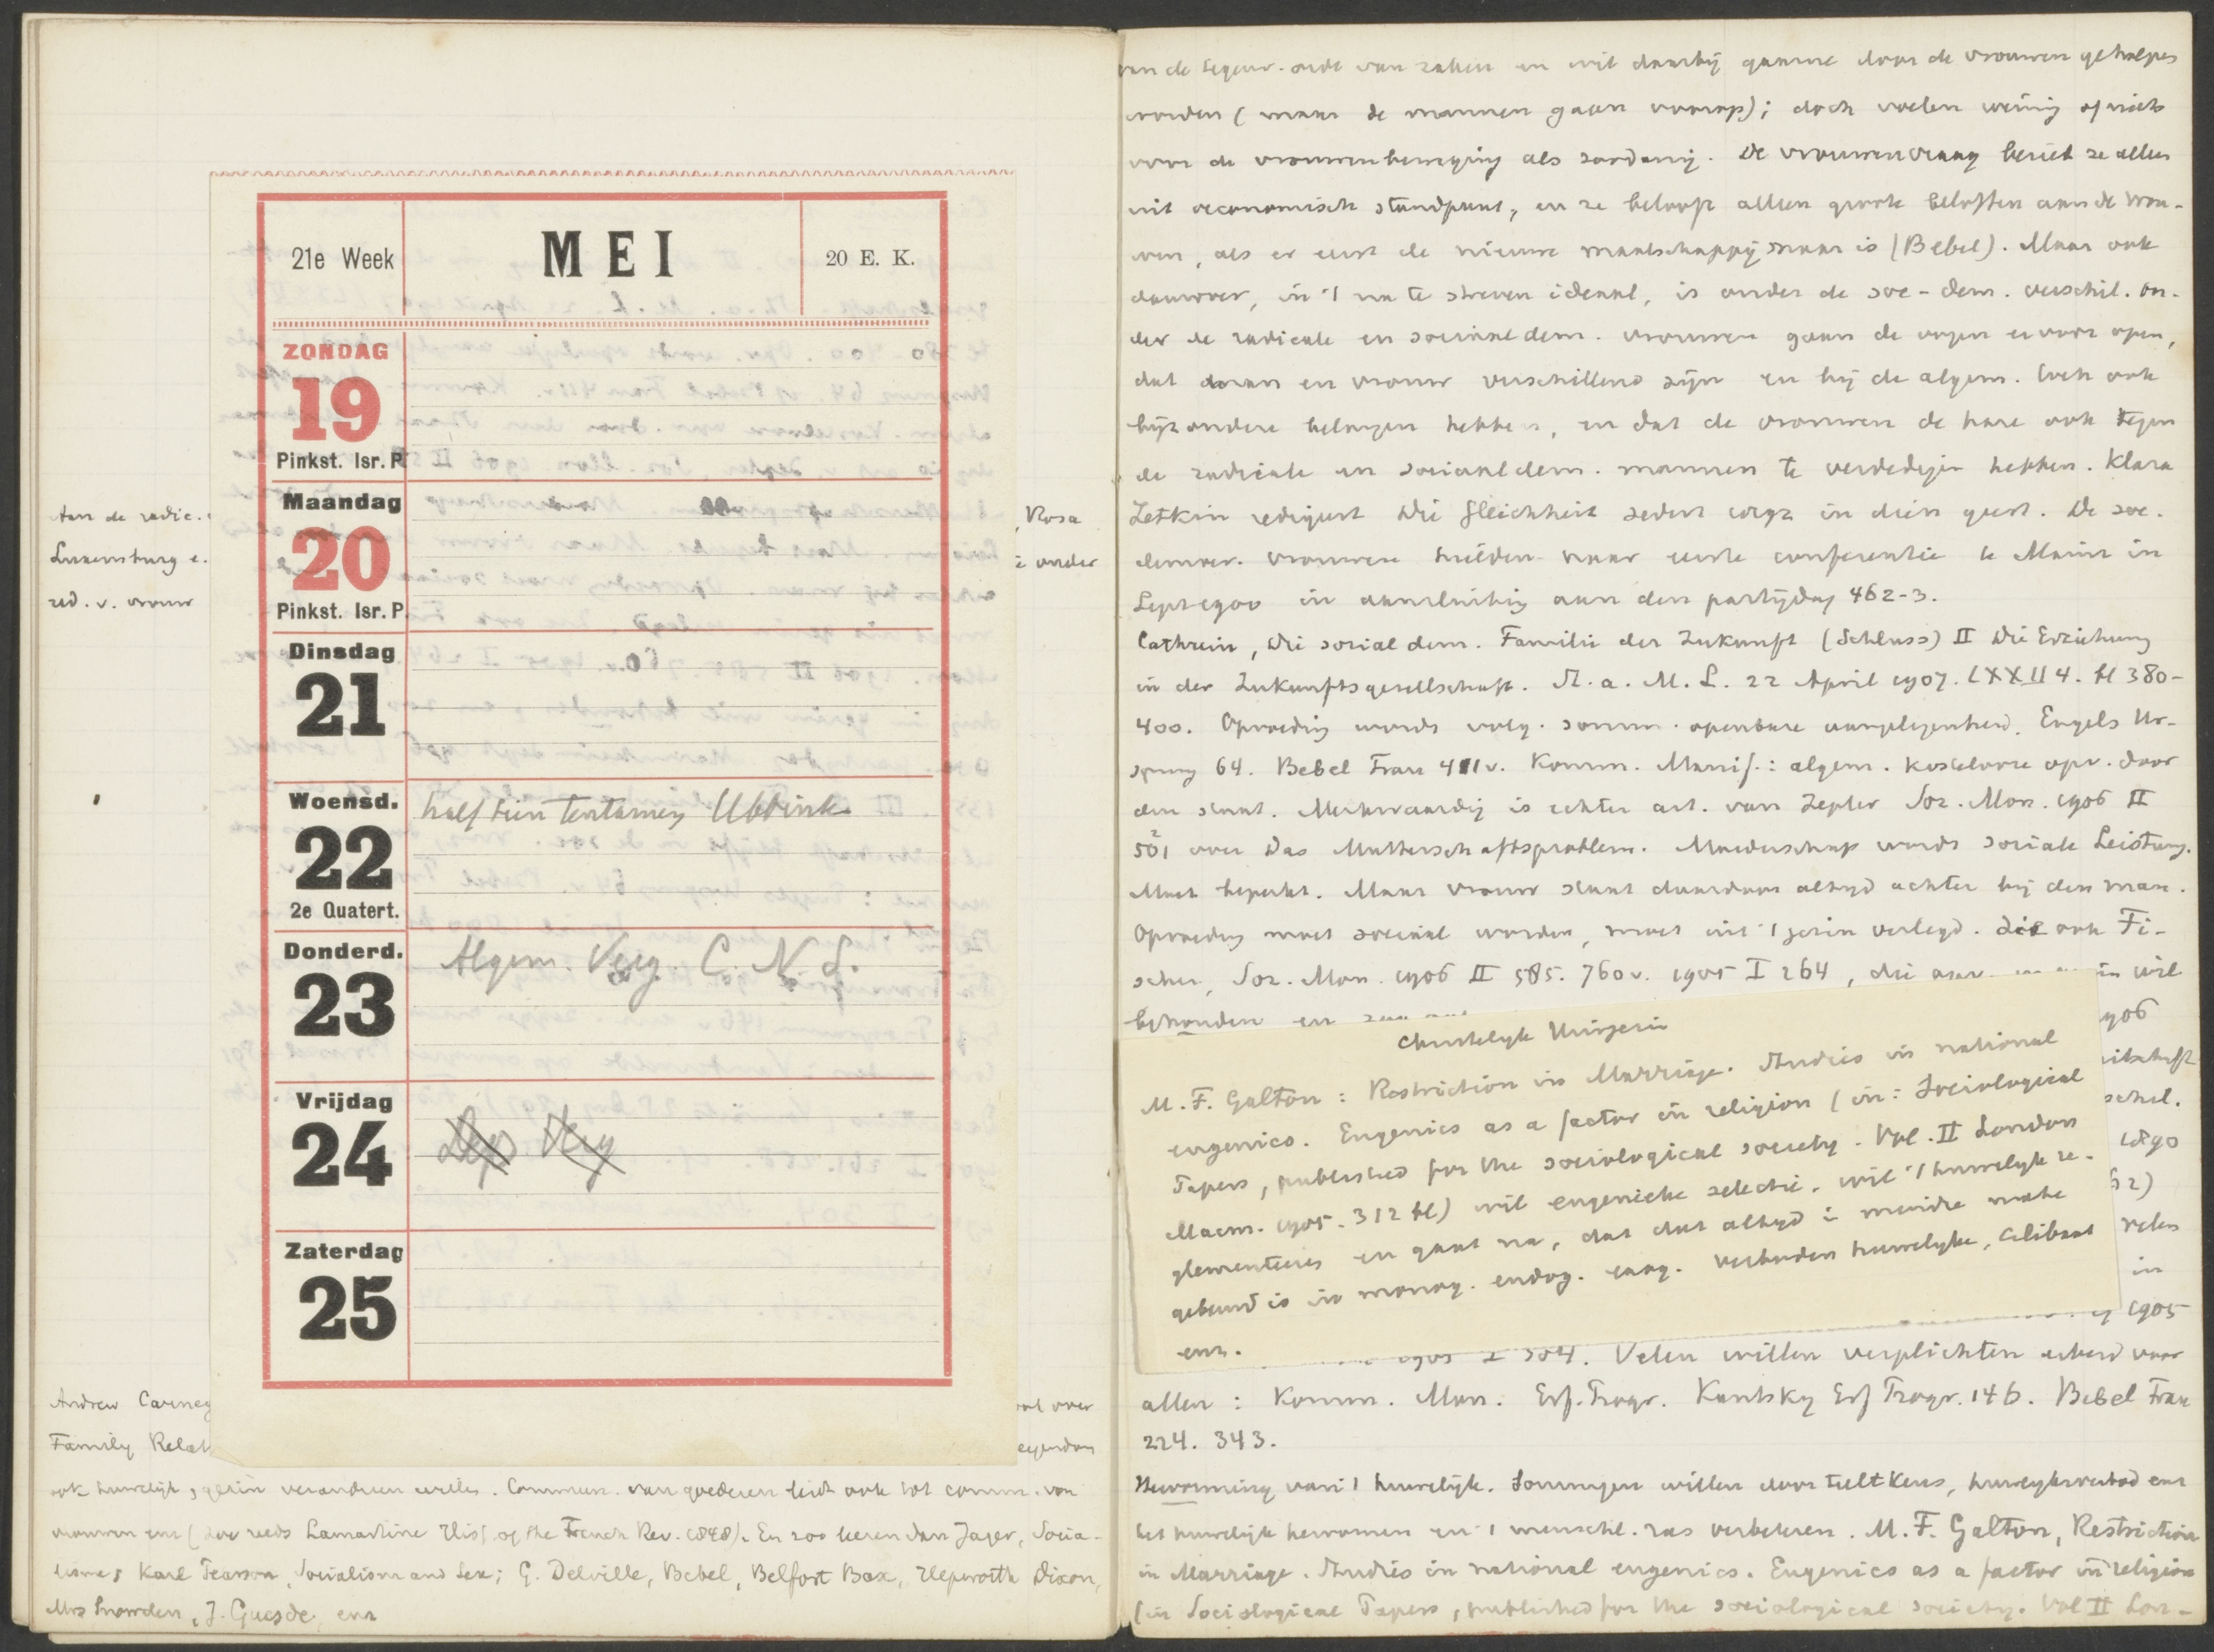 Aan de radic.
, Rosa
Luxemburg e.
e ander
red. v. vrouw
21e Week
MEI
20 E. K.
ZONDAG
19
Pinkst. Isr. P.
Maandag
20
Pinkst. Isr. P.
Dinsdag
21
Woensd.
22
2e Quatert.
half tien tentamen Ubbink
Donderd.
23
Algem. Verg. C. N. S.
Vrijdag
24
Zaterdag
25
Andrew Carneg
over
Family Relat
ook huwelijk, gezin veranderen willen. Commun. van goederen leidt ook tot comm. van
vrouwen enz (zoo reeds Lamartine Hist. of the French Rev. 1848). En zoo leeren dan Jager, Socia-
lisme; Karl Pearson, Socialism and Sex; G. Delville, Bebel, Belfort Bax, Hepworth Dixon,
Mrs Snowden, J. Guesde, enz
van zaken en wil daarbij gaarne door de vrouwen geholpen
worden (maar de mannen gaan voorop); doch voelen weinig of niets
voor de vrouwenbeweging als zoodanig. De vrouwenvraag beziet ze alleen
uit oeconomisch standpunt, en ze belooft alleen groote beloften aan de vrou-
wen, als er eerst de nieuwe maatschappij maar is (Bebel). Maar ook
daarover, in 't na te streven ideaal, is onder de soc-dem. verschil. On-
der de radicale en sociaaldem. vrouwen gaan de oogen ervoor open,
dat man en vrouw verschillend zijn en bij de algem. toch ook
bijzondere belangen hebben, en dat de vrouwen de hare ook tegen
de radicale en sociaaldem. mannen te verdedigen hebben. Klara
Zetkin redigeert Die Gleichheit sedert 1892 in dien geest. De soc.
democr. vrouwen hielden haar eerste conferentie te Mainz in
Sept 1900 in aansluiting aan den partijdag 462-3.
Cathrein, Die sozialdem. Familie der Zukunft (Schluss) II Die Erziehung
in der Zukunftsgesellschaft. St. a. M. L. 22 April 1907. LXXII 4. bl 380-
400. Opvoeding wordt volg. somm. openbare aangelegenheid. Engels Ur-
sprung 64. Bebel Frau 411v. Komm. Manif.: algem. kostelooze opv. door
den staat. Merkwaardig is echter art. van Zepler Soz. Mon. 1906 II
501 over Das Mutterschaftsproblem. Moederschap wordt sociale Leistung.
Moet beperkt. Maar vrouw staat daardoor altijd achter bij den man.
Opvoeding moet sociaal worden, moet uit 't gezin verlegd. Zie ook Fi-
scher, Soz. Mon. 1906 II 585. 760v. 1905 I 264, die
wil
behouden en
1906
1890
Christelijk Huisgezin
M. F. Galton: Restriction in Marriage. Studies in national
eugenics. Eugenics as a factor in religion (in: Sociological
Papers, published for the sociological society. Vol. II London
Macm. 1905. 312 bl) wil eugenieke selectie, wil 't huwelijk re-
glementeeren en gaat na, dat dat altijd i. meerdere mate
gebeurd is in monog. endog. exog. verboden huwelijke, celibaat
enz.
in
1905
304. Velen willen verplichten arbeid voor
allen: Komm. Man. Erf. Progr. Kautsky Erf Progr. 146. Bebel Frau
224. 343.
Hervorming van 't huwelijk. Sommigen willen door teeltkeus, huwelijksverbod enz
het huwelijk hervormen en 't menschl. ras verbeteren. M. F. Galton, Restriction
in Marriage. Studies in national eugenics. Eugenics as a factor in religion
(in Sociological Papers, published for the sociological society. Vol II Lon-